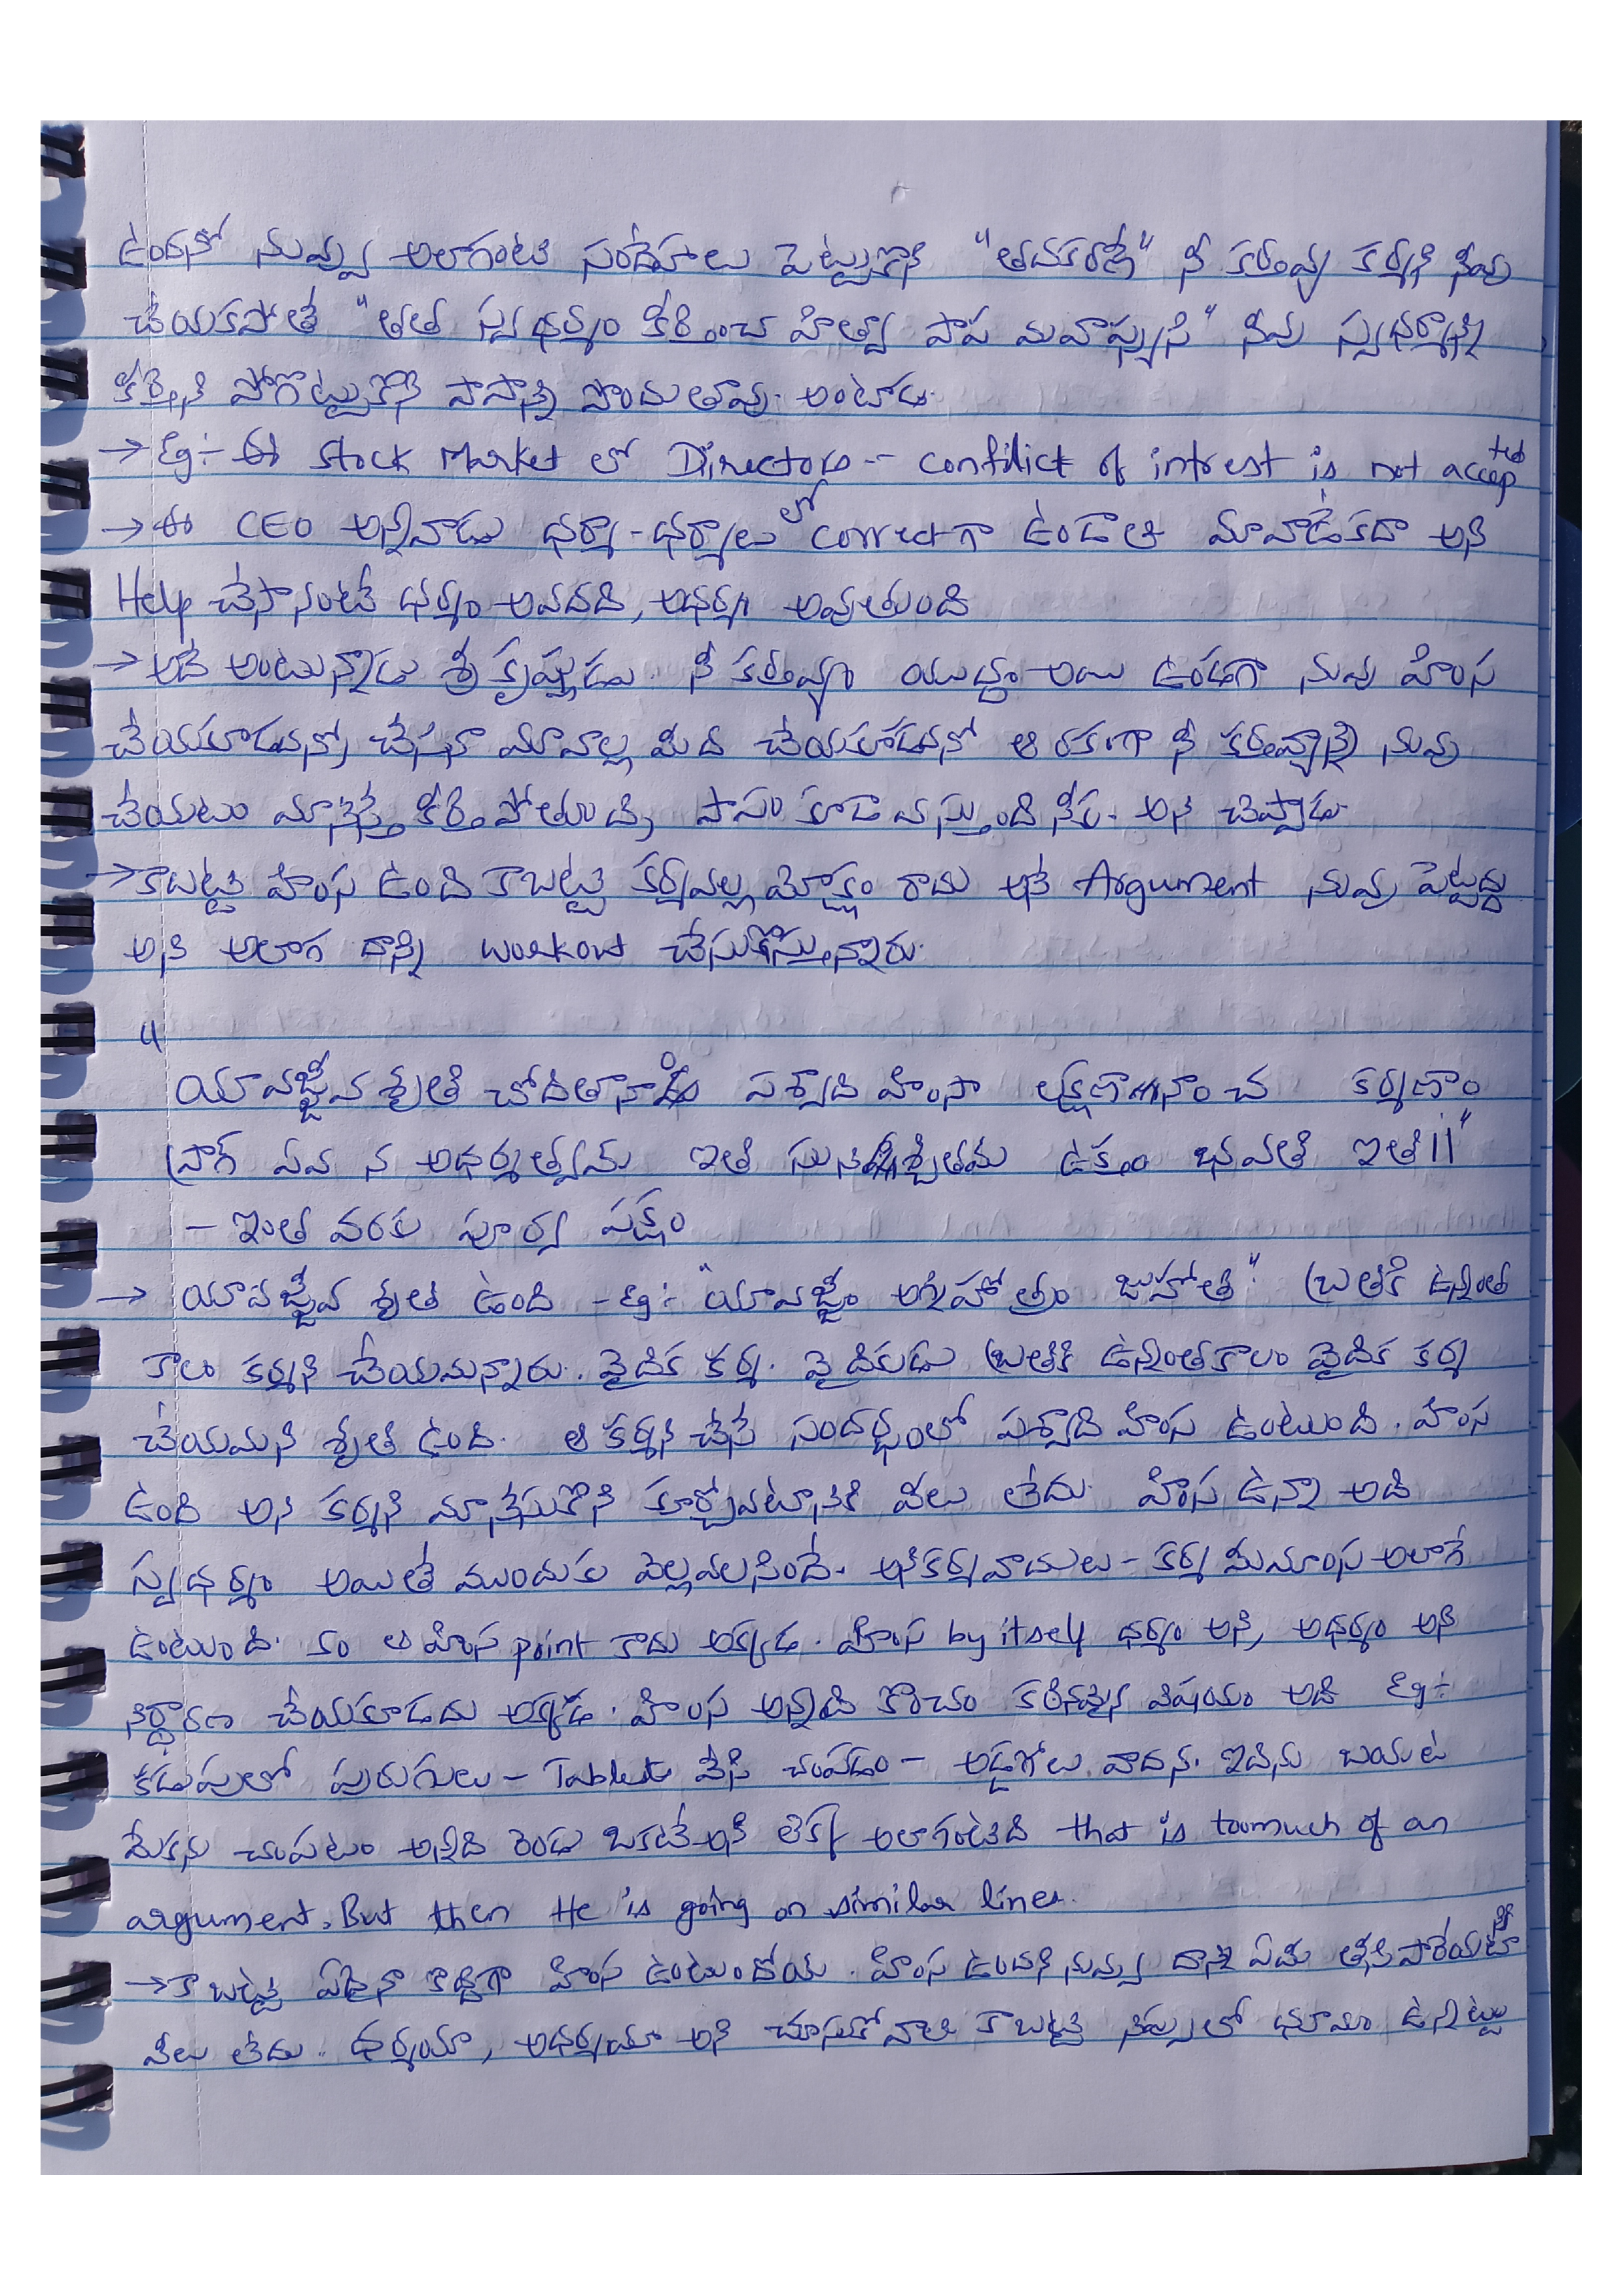 ఉందనో నువ్వు అలాగంటి సందేహాలు పెట్టుకొని "అదకరణే" నీ కర్తవ్య కర్మని నీవు
చేయకపోతే "తత స్వధర్మం కీర్తించ హిత్వా పాప మవాప్స్యసి" నీవు స్వధర్మాన్ని
కీర్తిని పోగొట్టుకొని పాపాన్ని పొందుతావు. అంటాడు.
→ Eg:- ఈ Stock Market లో Directors -- confilict of intrest is not accepted
→ ఈ CEO అన్నివాడు ధర్మా-ధర్మాలులో correctగా ఉండాలి మావాడేకదా అని
Help చేసానంటే ధర్మం అవదది, అధర్మం అవుతుంది
→ అదే అంటున్నాడు శ్రీ కృష్ణుడు. నీ కర్తవ్యం యుద్ధం అయి ఉండగా నువు హింస
చేయకూడదనో, చేసినా మావాల్ల మీద చేయకూడదనో ఆ రకంగా నీ కర్తవ్యాన్ని నువు
చేయటం మానేస్తే కీర్తి పోతుంది, పాపం కూడా వస్తుంది నీకు. అని చెప్పాడు.
→ కాబట్టి హింస ఉంది కాబట్టి కర్మవల్ల మోక్షం రాదు అనే Argument నువ్వు పెట్టద్దు
అని అలాగ దాన్ని workout చేసుకొస్తున్నారు.
"
యావజ్జీవ శృతి చోదితానాం పశ్వాది హింసా లక్షణానాం చ కర్మణాం
ప్రాగ్ ఏవ న అధర్మత్వమ్ ఇతి సునిశ్చితమ ఉక్తం భవతి ఇతి||"
- ఇంత వరకు పూర్వ పక్షం
→ యావజ్జీవ శృతి ఉంది - Eg:- "యావజ్జీం అగ్నిహోత్రం జుహోతి". (బ్రతికి ఉన్నంత
కాలం కర్మని చేయమన్నారు. వైదిక కర్మ. వైదికుడు బ్రతికి ఉన్నంతకాలం వైదిక కర్మ
చేయమని శృతి ఉంది. ఆ కర్మని చేసే సందర్భంలో పశ్వాది హింస ఉంటుంది. హింస
ఉంది అని కర్మని మానేసుకొని కూర్చోవటానికి వీలు లేదు. హింస ఉన్నా అది
స్వధర్మం అయితే ముందుకు వెల్లవలసిందే. అని కర్మవాదులు - కర్మ మీమాంస అలాగే
ఉంటుంది. కం ఆ హింస point కాదు అక్కడ. హింస by itself ధర్మం అని, అధర్మం అని
నిర్ధారణ చేయకూడదు అక్కడ. హింస అన్నది కొంచం కఠినమైన విషయం అది Eg:-
కడుపులో పురుగులు - Tablet వేసి చంపడం - అడ్డగోలు వాదన. ఇదిను బయట
మేకను చంపటం అన్నది రెండు ఒకటే అని లెక్క అలాగంటిది that is toomuch of an
argument. But then He is going on similar lines.
→ కాబట్టి ఏదైనా కొద్దిగా హింస ఉంటుందోయ. హింస ఉందని నువ్వు దాన్ని ఏమి తీసి పారేయటానికి
వీలు లేదు. ధర్మయా, అధర్మయా అని చూసుకోవాలి కాబట్టి నిప్పులో ధూమం ఉన్నట్టు